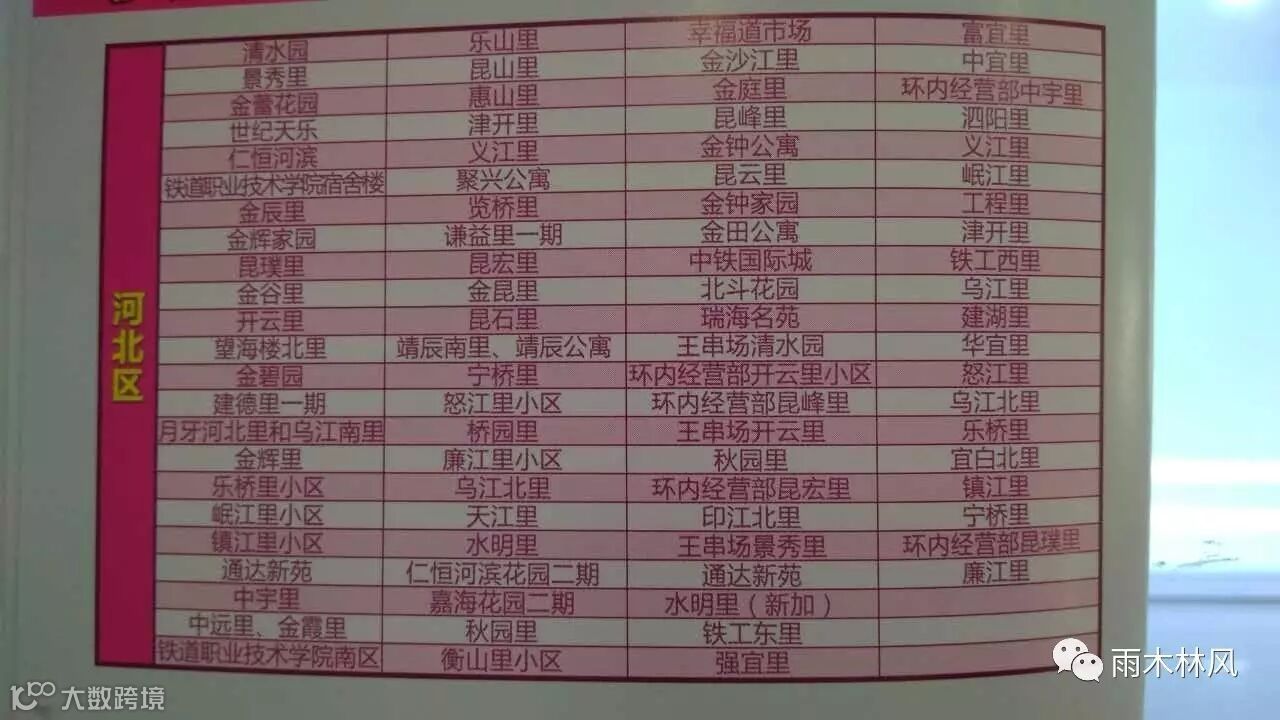 河北区
清水园 乐山里 幸福道市场 富宜里
景秀里 昆山里 金沙江里 中宜里
金蕾花园 惠山里 金庭里 环内经营部中宇里
世纪天乐 津开里 昆峰里 泗阳里
仁恒河滨 义江里 金钟公寓 义江里
铁道职业技术学院宿舍楼 聚兴公寓 昆云里 岷江里
金辰里 览桥里 金钟家园 工程里
金辉家园 谦益里一期 金田公寓 津开里
昆璞里 昆宏里 中铁国际城 铁工西里
金谷里 金昆里 北斗花园 乌江里
开云里 昆石里 瑞海名苑 建湖里
望海楼北里 靖辰南里、靖辰公寓 王串场清水园 华宜里
金碧园 宁桥里 环内经营部开云里小区 怒江里
建德里一期 怒江里小区 环内经营部昆峰里 乌江北里
月牙河北里和乌江南里 桥园里 王串场开云里 乐桥里
金辉里 廉江里小区 秋园里 宜白北里
乐桥里小区 乌江北里 环内经营部昆宏里 镇江里
岷江里小区 天江里 印江北里 宁桥里
镇江里小区 水明里 王串场景秀里 环内经营部昆璞里
通达新苑 仁恒河滨花园二期 通达新苑 廉江里
中宇里 嘉海花园二期 水明里（新加）
中远里、金霞里 秋园里 铁工东里
铁道职业技术学院南区 衡山里小区 强宜里
雨木林风
大数跨境